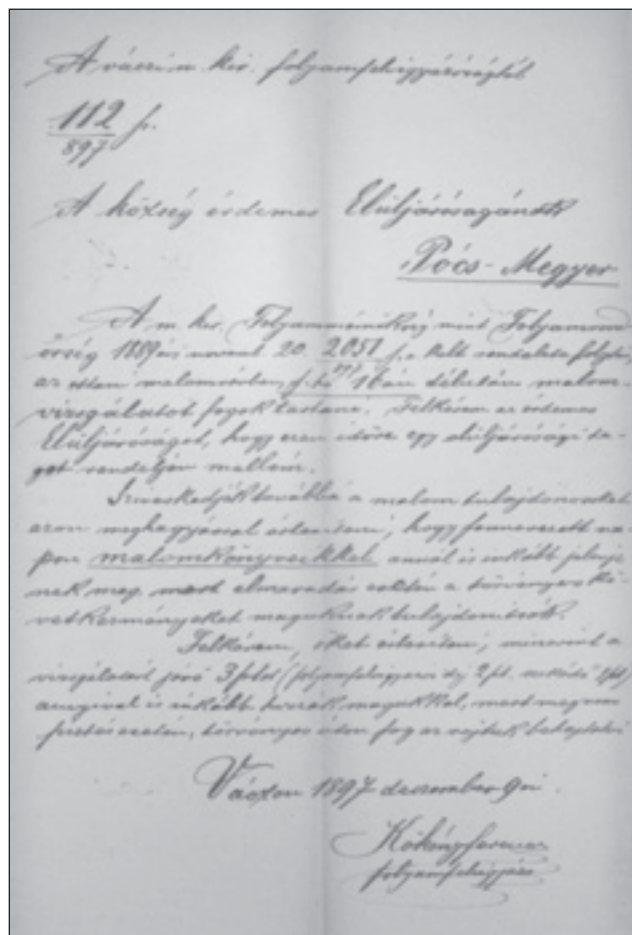 A váczi m. kir. folyamfelvigyázóságtól
112/897 f.
A község érdemes Elüljáróságának
Poócs-Megyer
A m. kir. Folyammérnökség mint Folyamrend
őrség 1889 évi novemb 20. 2051 f. a kelt rendelete folytán,
az ottani malom f. hó 16 án délután malom-
vizsgálatot fogok tartani. Felkérem az érdemes
Elüljáróságot, hogy ezen időre egy elüljárósági ta-
got rendeljen mellém.
Sziveskedjék továbbá a malom tulajdonosokat
azon meghagyással értesíteni, hogy fennevezett na-
pon malomkönyveikkel annál is inkább jelenje
nek meg, mert elmaradás esetén a törvényes kö-
vetkezményeket maguknak tulajdonítsák.
Felkérem, őket értesíteni, miszerint a
vizsgálatért járó 3 frtot (folyamfelvigyázói dij 2 ft.
annyival is inkább hozzák magukkal, mert meg nem
fizetés esetén, törvényes úton fog az rajtuk behajtatni
Váczon 1897 december 9 én.
Kökény Ferencz
folyamfelvigyázó